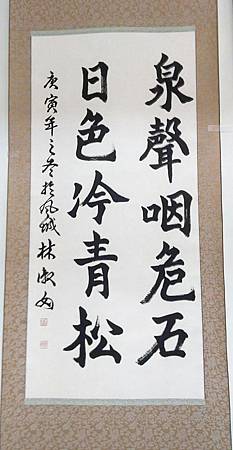 泉聲咽危石
日色冷青松
庚寅年之冬於風城林淑女